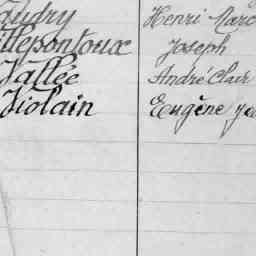 Audry Henri Marc
Illepontoux Joseph
Vallée André Clair
Violain Eugène